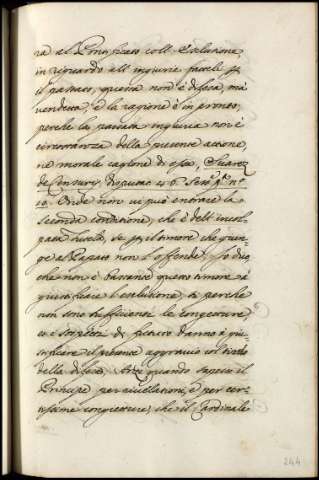 ra al Pontificato coll'Esclusione,
in riguardo all'ingiurie fatteli p
il passato, questa non è difesa, mà
vendetta, e la ragione è in pronto,
perche la passata ingiuria non è
circostanza della presente azione,
ne morale cagione di essa, Suarez
de Censuris, disputat. 46. Sect.
10. Onde non vi può entrare la
seconda condizione, che è dell'incol-
pata tutela, se p il timore che giun-
ge al Papato non l'offende. Io dico
che non è bastante questo timore à
giustificare l'esclusione, si perche
non sono sufficiente le congetture,
et i sospetti di futuro danno à giu-
stificare il presente aggravio col titolo
della difesa, Anzi quando sapesse il
Principe per rivelatione, e per cer-
tissime congietture, che il Cardinale
244